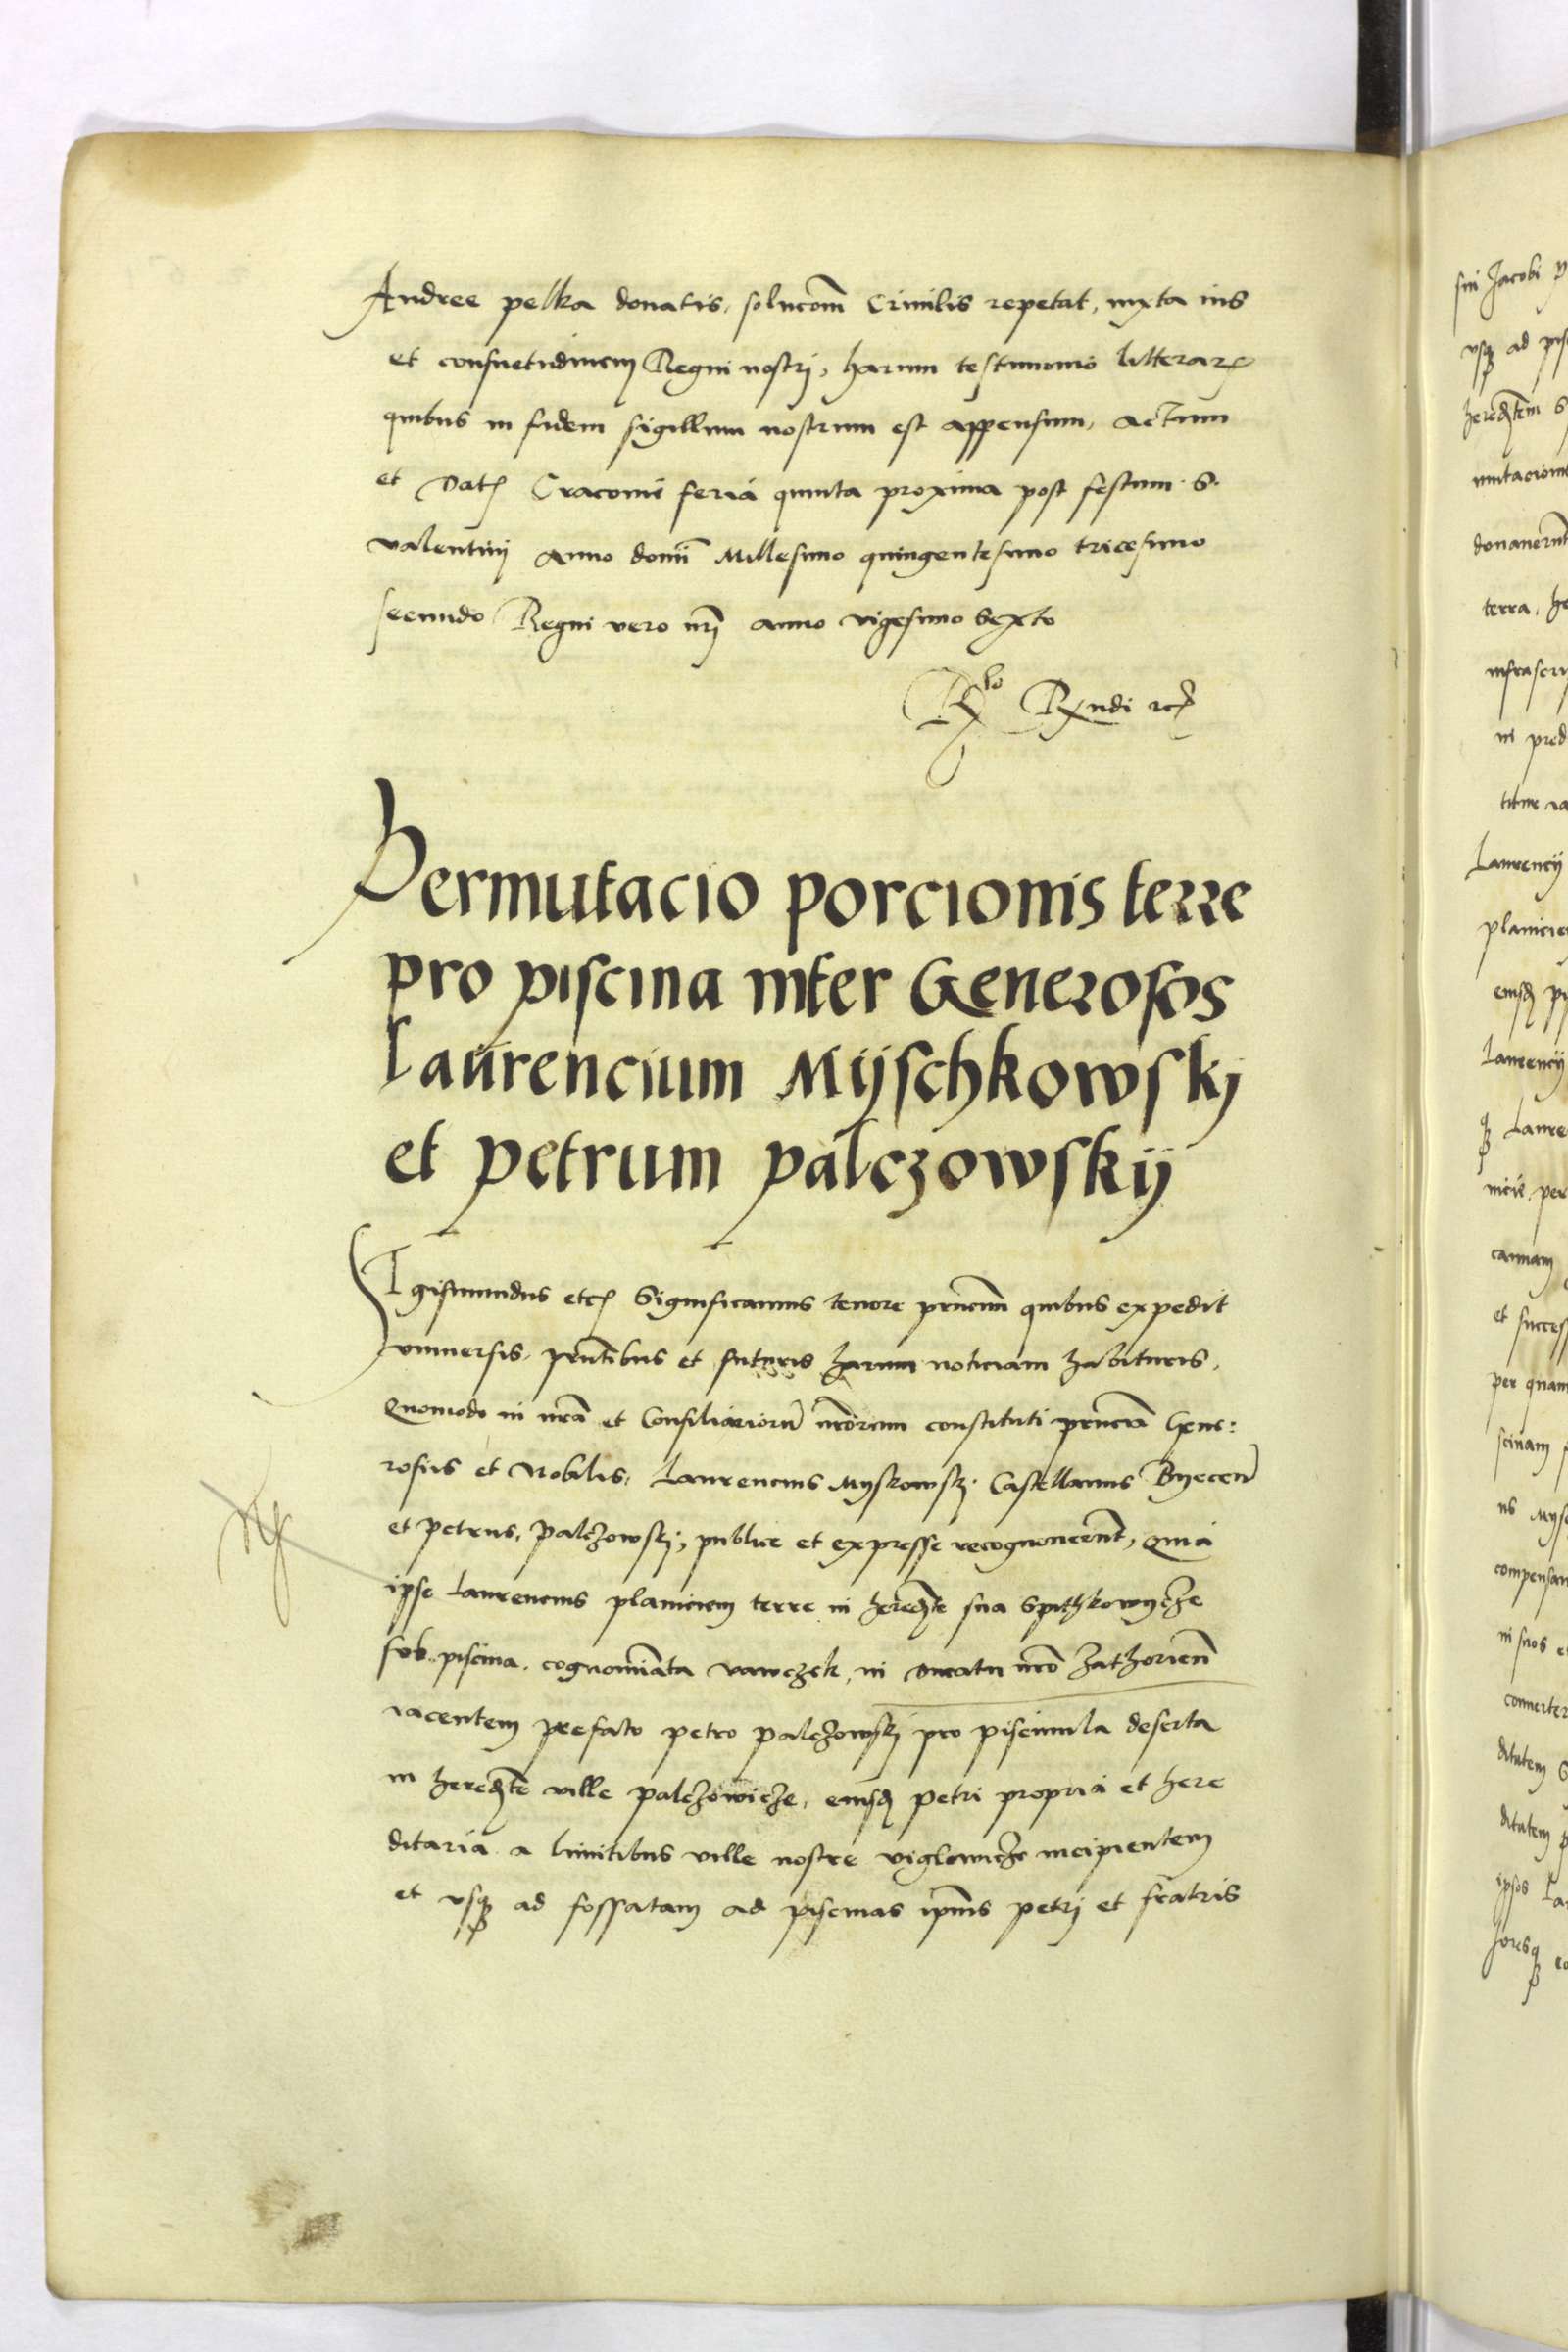 Andree pelka donatis, solucom̄ Crinilis repetat, iuxta ius
et consuetudinem Regni nostrj, harum testimonio litterarꝫ
quibus in fidem sigillum nostrum est appensum, actum
et Datꝫ Cracovie feria quinta proxima post festum S.
valentinj anno domī Millesimo quingentesimo tricesimo
secundo Regni vero nrj̄ anno vigesimo Sexto
Rlo Rxndi rcꝫ
Permutacio porcionis terre
pro piscina inter Generosos
Laurencium Mijschkowskj
et petrum palczowskij
SIgismundus etcꝫ Significamus tenore prncīm quibus expedit
vniuersis, prn̄tibus et futuris harum noticiam habituris,
Quomodo in nrā et Consiliariorū nrōrum constituti prncīā Gene:
rosus et Nobilis, Laurencius Myskowskj Castellanus Byeceñ
et petrus, palczowskj, publice et expresse recognouerūt, Quia
ipse Laurencius planiciem terre in heredt̄e sua Spithkowycze
sub piscina, cognomīata vawczek, in ducatu nrō Zathorień
iacentem prefato petro palczowskj pro piscinula deserta
in heredt̄e ville palczowicze, eiusdꝫ petri propria et here
ditaria a limitibus ville nostre viglowicze incipientem
et vsqꝫ ad fossatam ad piscinas ipīus petrj et fratris
sui Jacobi
vsqꝫ ad
heredt̄em
mutacion
donauerunt
terra, he
infrascri
in pred
Laurencij
planicie
eiusdꝫ pi
Laurencij
Laure
et success
per quam
scinam
us Mys
compensan
in suos et
conuerter
ditatem
ditatem
ipsos La